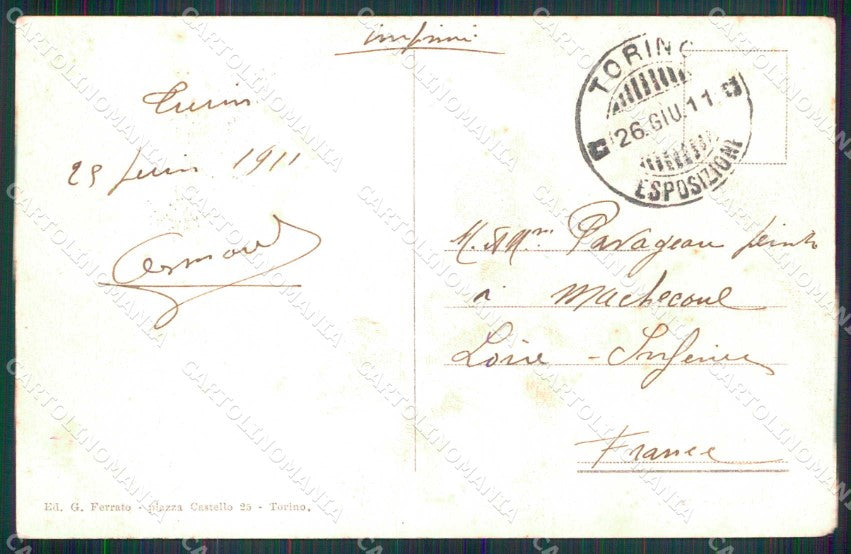 imprimé
TORINO
26.GIU.11
ESPOSIZIONE
Turin
25 Juin 1911
Armand
M. & Mme Pavageau peintre
à Machecoul
Loire - Inférieure
France
Ed. G. Ferrato - piazza Castello 25 - Torino.
CARTOLINOMANIA